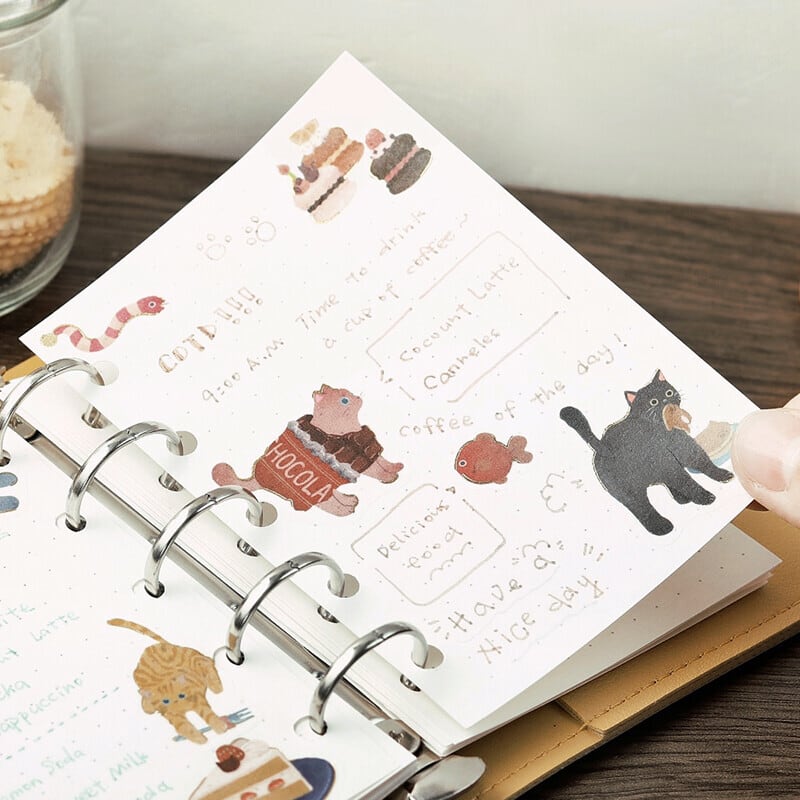 COTD!!!
9:00 A.M Time to drink
a cup of coffee~
Cocount Latte
Canneles
coffee of the day!
CHOCOLA
Delicious
food
Have a
Nice day
Latte
appuccino
Soda
Milk